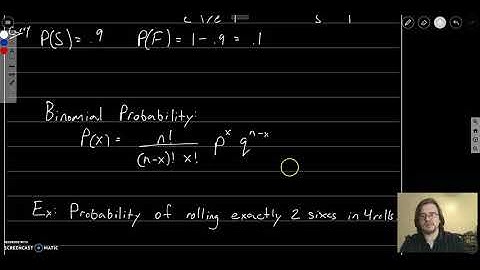 P(S) = .9 P(F) = 1 - .9 = .1
Binomial Probability:
P(x) = n! / (n-x)! x! p^x q^(n-x)
Ex: Probability of rolling exactly 2 sixes in 4 rolls.
RECORDED WITH
SCREENCAST MATIC